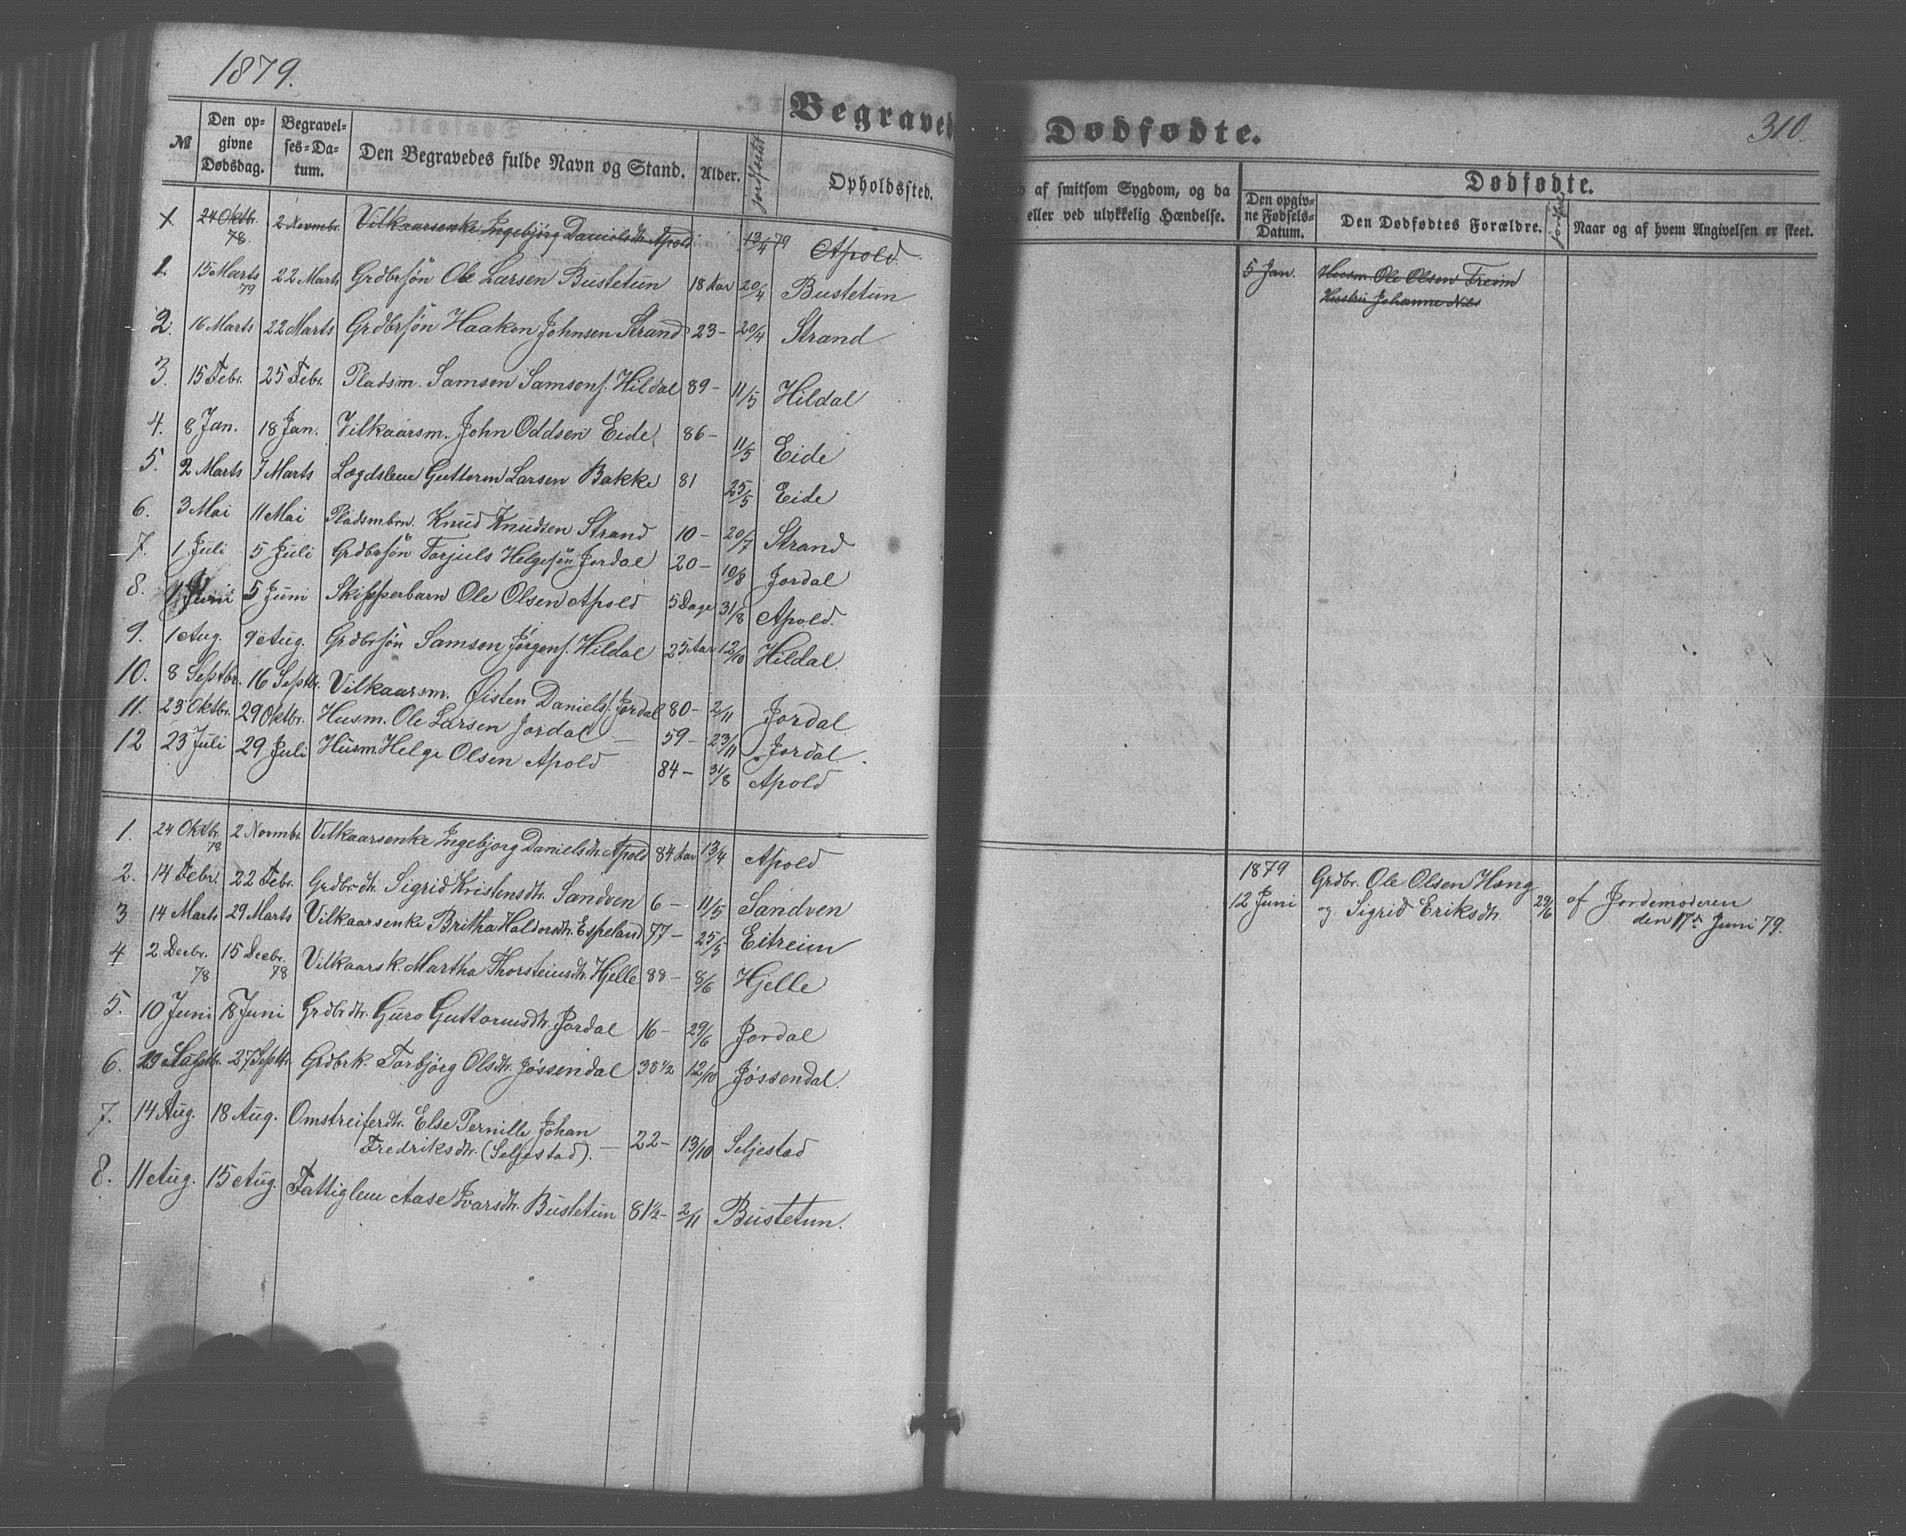 1879.
Begraved
№ Den opgivne Dødsdag. Begravelses-Datum. Den Begravedes fulde Navn og Stand. Alder. Jordfæstet Opholdssted.
24 Oktbr. 78. 2 Novmbr. Vilkaarsenke Ingebjörg Danielsdtr. Apold 13/4 79 Apold.
1. 15 Marts 79 22 Marts Grdbrsön Ole Larsen Bustetun 18 Aar 20/4 Bustetun
2. 16 Marts 22 Marts Grdbrsön Haaken Johnsen Strand 23 – 20/4 Strand
3. 15 Febr. 25 Febr. Pladsm. Samson Samsons. Hildal 89 – 11/5 Hildal
4. 8 Jan. 18 Jan. Vilkaarsm. John Oddsen Eide 86 – 11/5 Eide
5. 2 Marts 7 Marts Lægdslem Guttorm Larsen Bakke 81 25/5 Eide
6. 3 Mai 11 Mai Pladsmbrn. Knud Knudsen Strand 10 – 20/7 Strand
7. 1 Juli 5 Juli Grdbrsön Torjuls Helgesön Jordal 20 – 10/8 Jordal
8. 1 Juni 5 Juni Skipperbarn Ole Olsen Apold 5 Dage 31/8 Apold.
9. 1 Aug. 9 Aug. Grdbrsön Samson Jørgens. Hildal 25 Aar 12/10 Hildal.
10. 8 Septbr. 16 Septbr. Vilkaarsm. Øisten Daniels. Jordal 80 – 2/11 Jordal
11. 23 Oktbr. 29 Oktbr. Husm. Ole Larsen Jordal – 59 – 23/11 Jordal
12 23 Juli 29 Juli Husm. Helge Olsen Apold 84 – 31/8 Apold
1. 24 Oktbr. 78 2 Novmbr. Vilkaarsenke Ingebjorg Danielsdtr. Apold 84 Aar 13/4 Apold
2. 14 Febr. 22 Febr. Grdbrdtr. Sigrid Kristensdtr. Sandven 6 – 11/5 Sandven
3 14 Marts 29 Marts Vilkaarsenke Britha Haldorsdtr. Espeland 77 – 25/5 Eitreim
4 2 Decbr. 78 15 Decbr. 78 Vilkaarsk. Martha Thorsteinsdtr. Hjelle 88 – 8/6 Hjelle
5. 10 Juni 18 Juni Grdbrdtr. Guro Guttormsdtr. Jordal 16 – 29/6 Jordal
6. 27 Septbr. Grdbrk. Torbjörg Olsdtr. Jøssendal 38 1/2 12/10 Jøssendal.
7. 14 Aug. 18 Aug. Omstreiferdtr. Else Pernille Johan
Fredriksdtr. (Seljestad). – 22 – 13/10 Seljestad
8. 11 Aug. 15 Aug. Fattiglem Aase Ivarsdtr. Bustetun 81 1/2 – 2/11 Bustetun.
Dødfødte.
310.
af smitsom Sygdom, og da
eller ved ulykkelig Hændelse.
Dødfødte.
Den opgivne Fødsels-Datum. Den Dødfødtes Forældre. Naar og af hvem Angivelsen er skeet.
5 Jan. Husm. Ole Olsen Freim
Hustru Johanne Nils
1879
12 Juni Grdbr. Ole Olsen Haug
og Sigrid Eriksdtr. 29/6 af Jordemoderen
den 17de Juni 79.